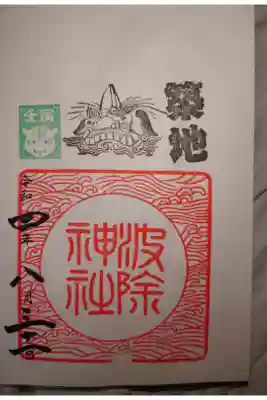 壬寅
築地
波除
神社
令和四年八月